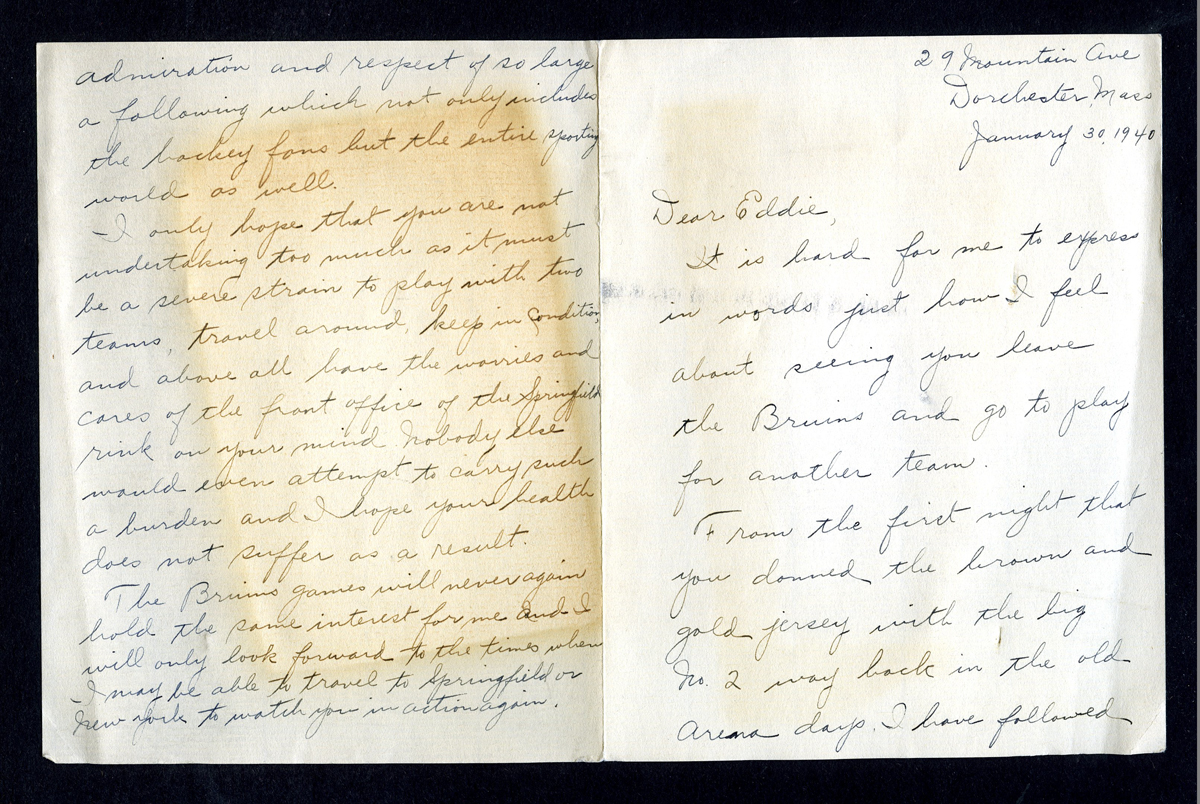 29 Mountain Ave
Dorchester, Mass
January 30, 1940
Dear Eddie,
It is hard for me to express
in words just how I feel
about seeing you leave
the Bruins and go to play
for another team.
From the first night that
you donned the brown and
gold jersey with the big
No. 2 way back in the old
Arena days, I have followed
admiration and respect of so large
a following which not only includes
the hockey fans but the entire sporting
world as well.
I only hope that you are not
undertaking too much as it must
be a severe strain to play with two
teams, travel around, keep in condition,
and above all have the worries and
cares of the front office of the Springfield
rink on your mind. Nobody else
would even attempt to carry such
a burden and I hope your health
does not suffer as a result.
The Bruins games will never again
hold the same interest for me and I
will only look forward to the times when
I may be able to travel to Springfield or
New York to watch you in action again.